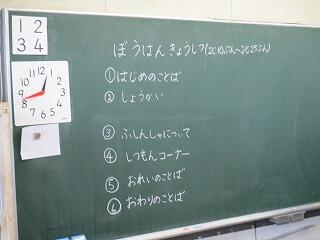 1 2
3 4
12
1
2
3
4
5
6
7
8
9
10
11
ぼうはんきょうしつ(2じ10ぷん〜2じ25ふん)
①はじめのことば
②しょうかい
③ふしんしゃについて
④しつもんコーナー
⑤おれいのことば
⑥おわりのことば